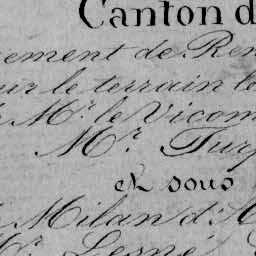 Canton d
ement de Ren
ur le terrain l
Mr. le Vicom
Mr. Tur
et sous
Milan d'A
Mr. Lesné